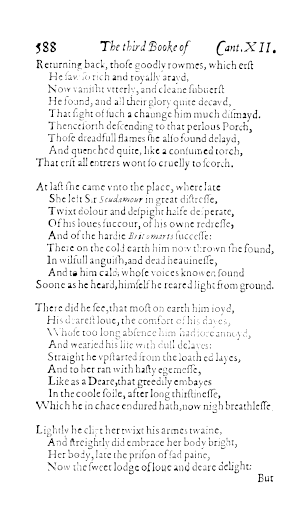 588 The third Booke of Cant. XII.
Returning back, those goodly rowmes, which erst
He saw so rich and royally arayd,
Now vanisht vtterly, and cleane subuerst
He found, and all their glory quite decayd,
That sight of such a chaunge him much dismayd.
Thenceforth descending to that perlous Porch,
Those dreadfull flames she also found delayd,
And quenched quite, like a consumed torch,
That erst all entrers wont so cruelly to scorch.
At last she came vnto the place, where late
She left Sir Scudamour in great distresse,
Twixt dolour and despight halfe desperate,
Of his loues succour, of his owne redresse,
And of the hardie Britomarts successe:
There on the cold earth him now thrown she found,
In wilfull anguish, and dead heauinesse,
And to him cald; whose voices knowen sound
Soone as he heard, himself he reared light from ground.
There did he see, that most on earth him ioyd,
His dearest loue, the comfort of his dayes,
Whose too long absence him had sore annoyd,
And wearied his life with dull delayes:
Straight he vpstarted from the loathed layes,
And to her ran with hasty egernesse,
Like as a Deare, that greedily embayes
In the coole soile, after long thirstinesse,
Which he in chace endured hath, now nigh breathlesse.
Lightly he clipt her twixt his armes twaine,
And streightly did embrace her body bright,
Her body, late the prison of sad paine,
Now the sweet lodge of loue and deare delight:
But